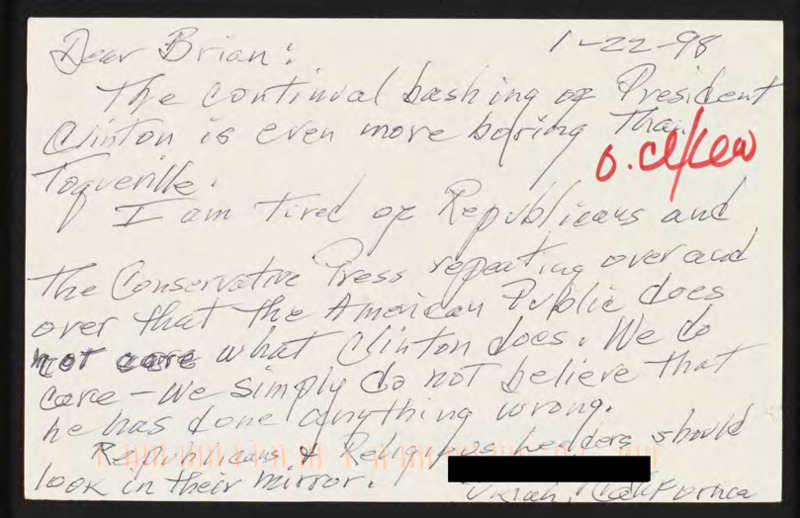 Dear Brian: 1-22-98
The continual bashing of President
Clinton is even more boring than
Toqueville.
I am tired of Republicans and
the Conservative Press repeating over and
over that the American Public does
not care what Clinton does. We do
care - we simply do not believe that
he has done anything wrong.
Republicans & Religious leaders should
look in their mirror.
Ukiah, California